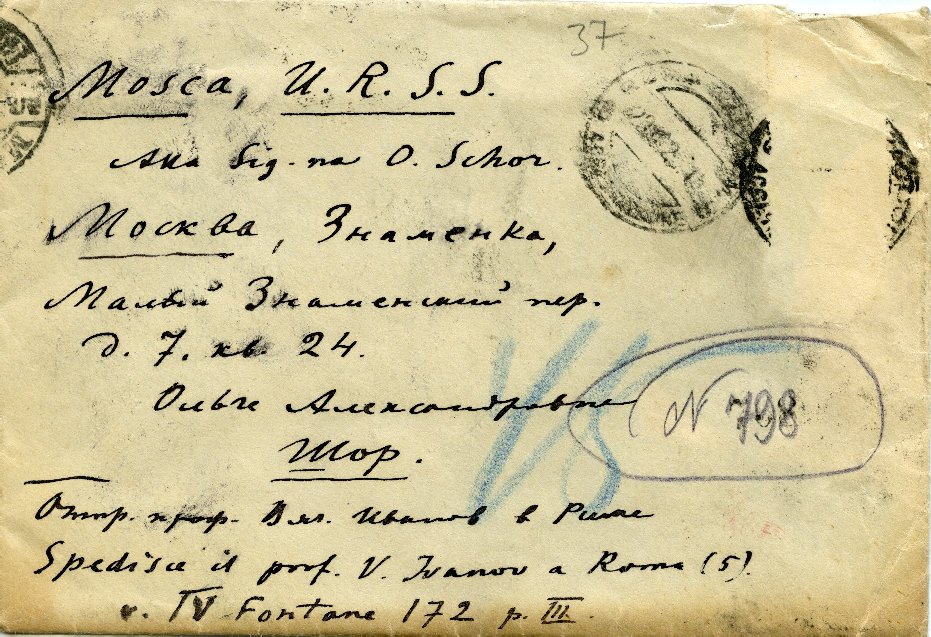 37
Mosca, U.R.S.S.
Alla Sig.na O. Schor.
Москва, Знаменка,
Малый Знаменский пер.
д. 7. кв. 24.
Ольге Александровне
N 798
Шор.
Отпр. проф. Вяч. Иванов в Риме
Spedisce il prof. V. Ivanov a Roma (5).
v. IV Fontane 172 p. III.